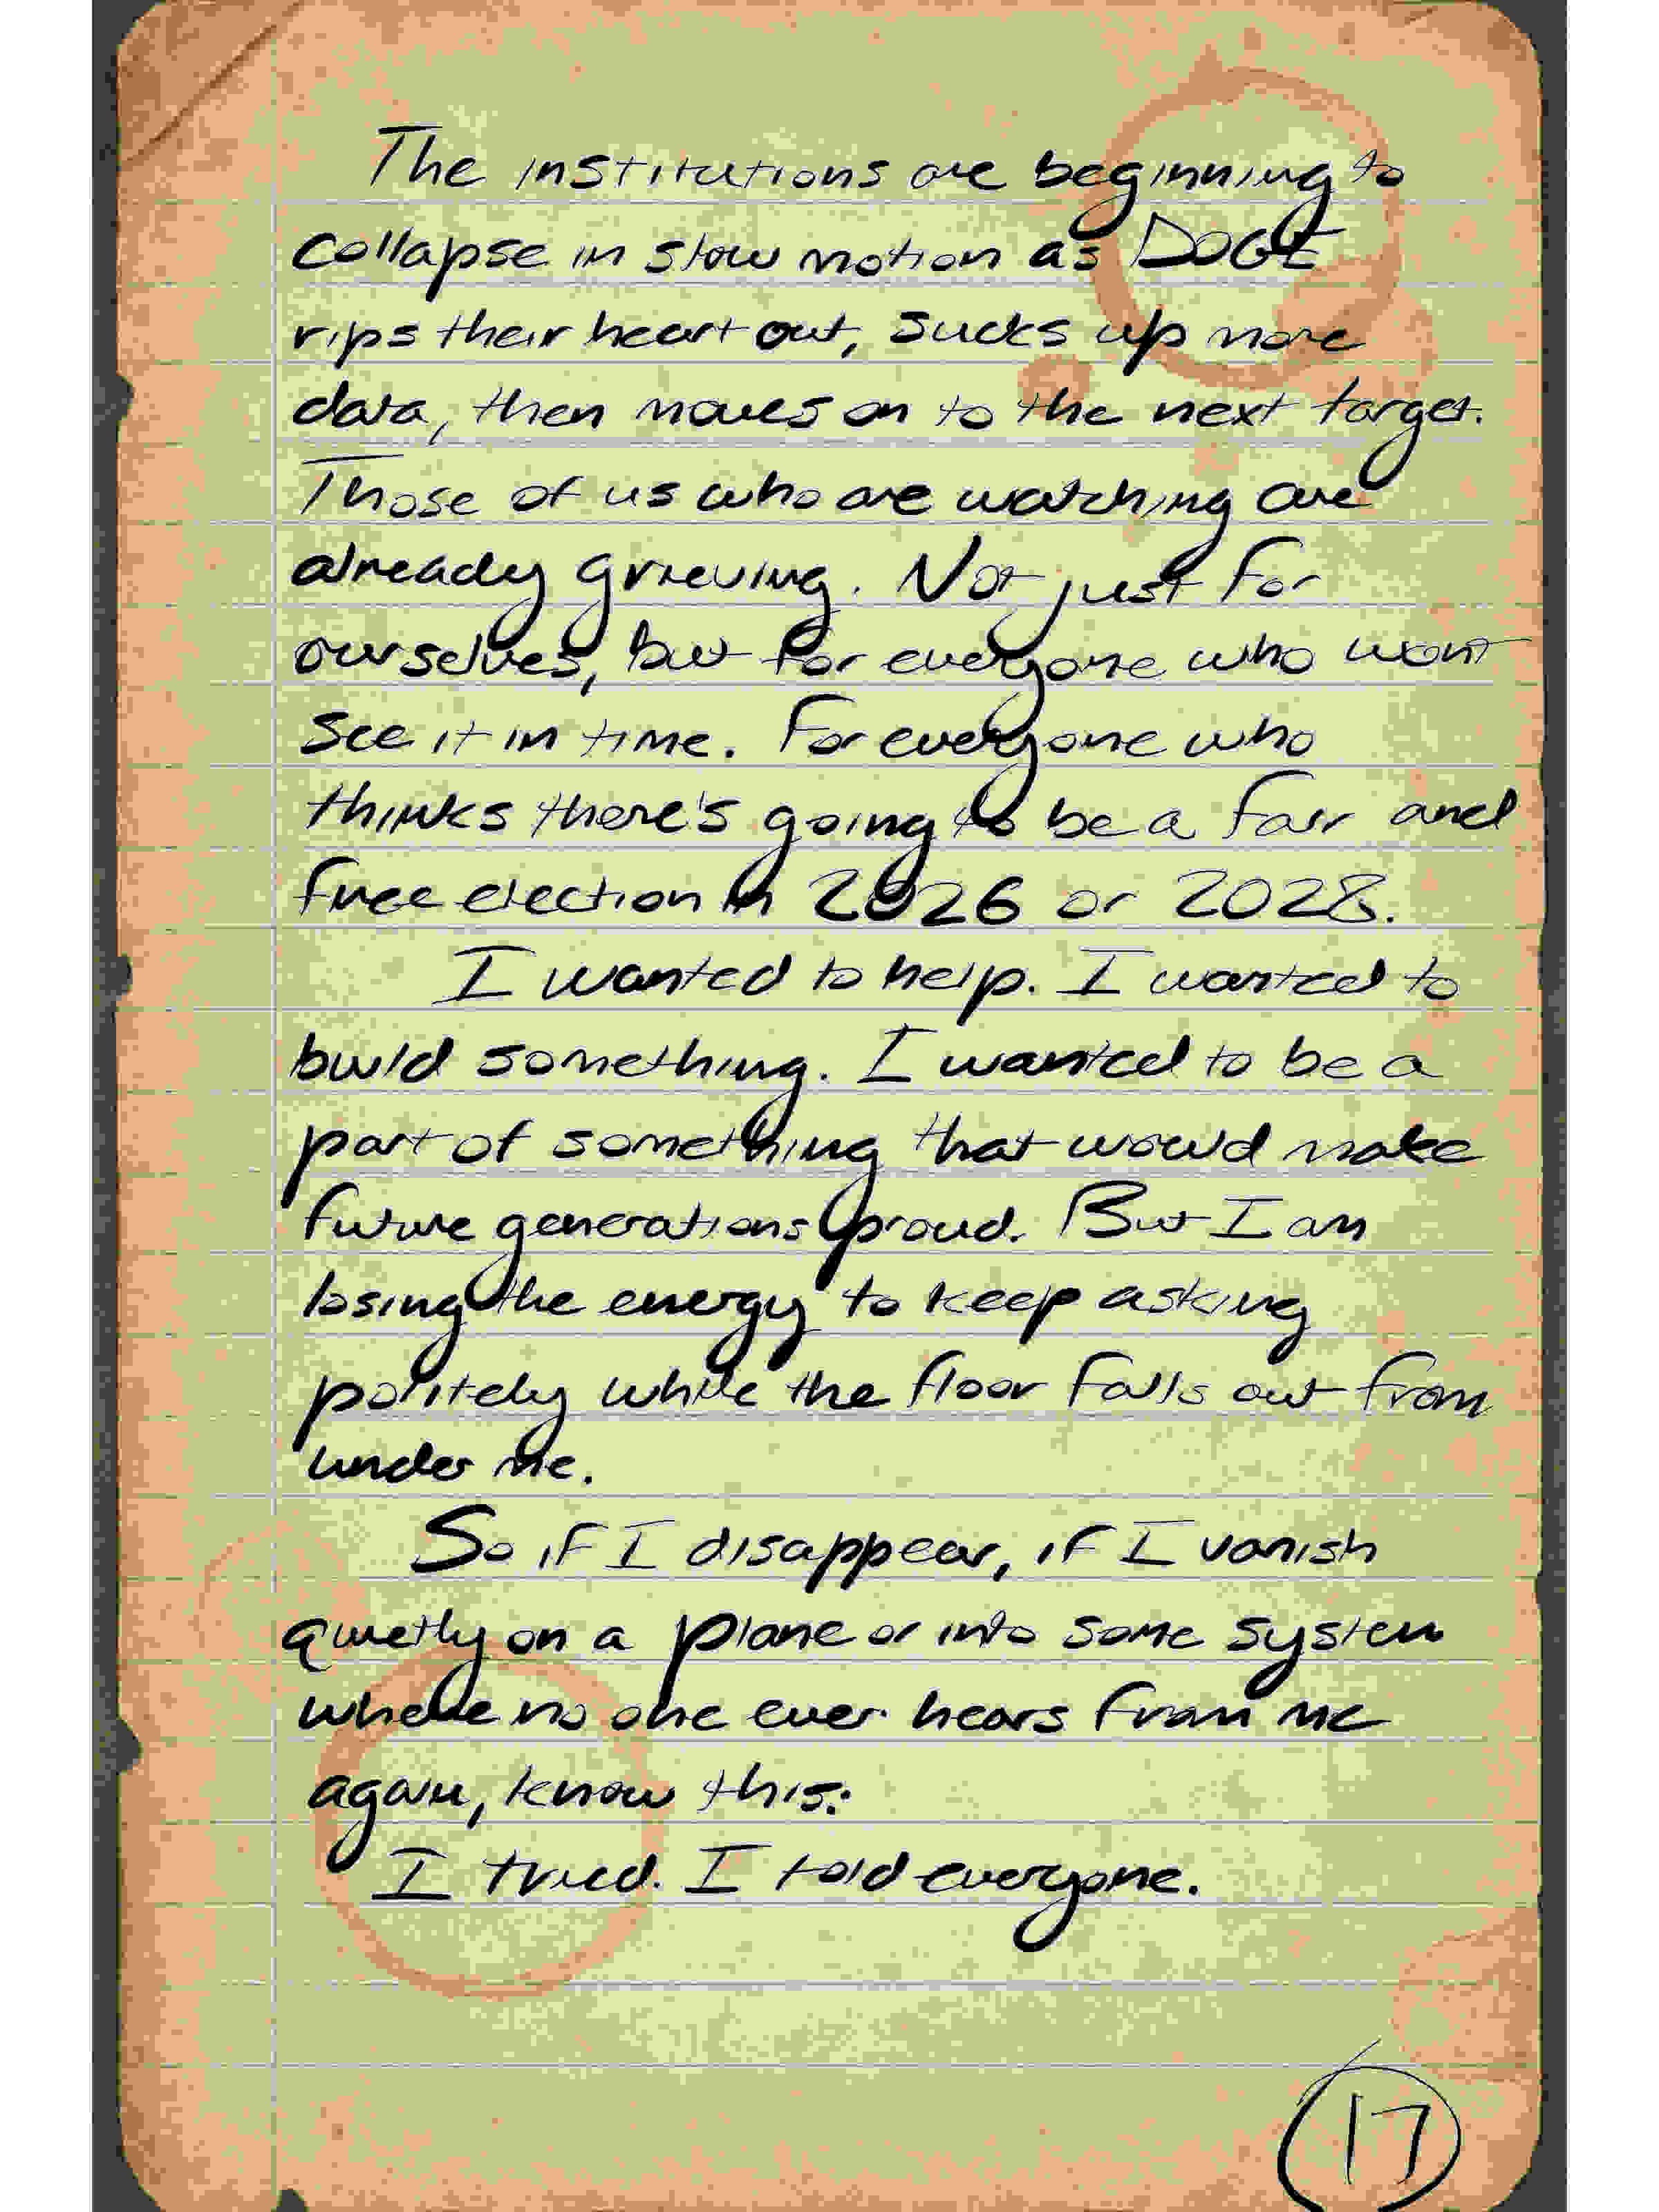 The institutions are beginning to
collapse in slow motion as DOGE
rips their heart out, sucks up more
data, then moves on to the next target.
Those of us who are watching are
already grieving. Not just for
ourselves, but for everyone who won't
see it in time. For everyone who
thinks there's going to be a fair and
free election in 2026 or 2028.
I wanted to help. I wanted to
build something. I wanted to be a
part of something that would make
future generations proud. But I am
losing the energy to keep asking
politely while the floor falls out from
under me.
So if I disappear, if I vanish
quietly on a plane or into some system
where no one ever hears from me
again, know this:
I tried. I told everyone.
17